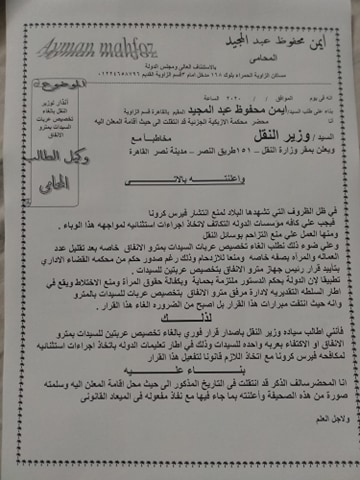 Ayman mahfoz
أيمن محفوظ عبد المجيد
المحامى
بالاستئناف العالى ومجلس الدولة
الموضوع
انذار لوزير
النقل بالغاء
تخصيص عربات
السيدات بمترو
الانفاق
وكيل الطالب
المحامى
انه فى يوم الموافق / / ٢٠٢٠ الساعة
بناء على طلب السيد/ أيمن محفوظ عبد المجيد المقيم بالقاهرة قسم الزاوية
انا محضر محكمة الازبكية الجزئية قد انتقلت الى حيث اقامة المعلن اليه
السيد / وزير النقل مخاطبا مع
ويعلن بمقر وزارة النقل .. ١٥١ طريق النصر .. مدينة نصر القاهرة
واعلنته بالاتى
فى ظل الظروف التي تشهدها البلاد لمنع انتشار فيرس كرونا
فيجب على كافه مؤسسات الدوله التكاتف لاتخاذ اجراءات استثنائيه لمواجهه هذا الوباء .
ومنها العمل على منع التزاحم بوسائل النقل
وعلى ضوء ذلك نطلب الغاء تخصيص عربات السيدات بمترو الانفاق خاصه بعد تقليل عدد
العماله والمرأه بصفه خاصه ومنعا للازدحام وذلك رغم صدور حكم من محكمه القضاء الاداري
بتأييد قرار رئيس جهاز مترو الانفاق بتخصيص عربتين للسيدات .
تطبيقا لان الدولة بحكم الدستور ملتزمة بحماية وبكفالة حقوق المرأة ومنع الاختلاط ويقع في
اطار السلطه التقديريه لادارة مرفق مترو الانفاق بتخصيص عربات للسيدات بالمترو
وانه حيث انتفت مبرارات هذا القرار بل اصبح من الضروره الغاء هذا القرار .
لذلك
فأننى اطالب سياده وزير النقل باصدار قرار فوري بالغاء تخصيص عربتين للسيدات بمترو
الانفاق او الاكتفاء بعربه واحده للسيدات وذلك في اطار تعليمات الدوله باتخاذ اجراءات استثنائيه
لمكافحه فيرس كرونا مع اتخاذ اللازم قانونا لتفعيل هذا القرار
بناء عليه
انا المحضر سالف الذكر قد انتقلت فى التاريخ المذكور الى حيث محل اقامة المعلن اليه وسلمته
صورة من هذه الصحيفة وأعلنته بما جاء فيها مع نفاذ مفعوله فى الميعاد القانونى
ولاجل العلم